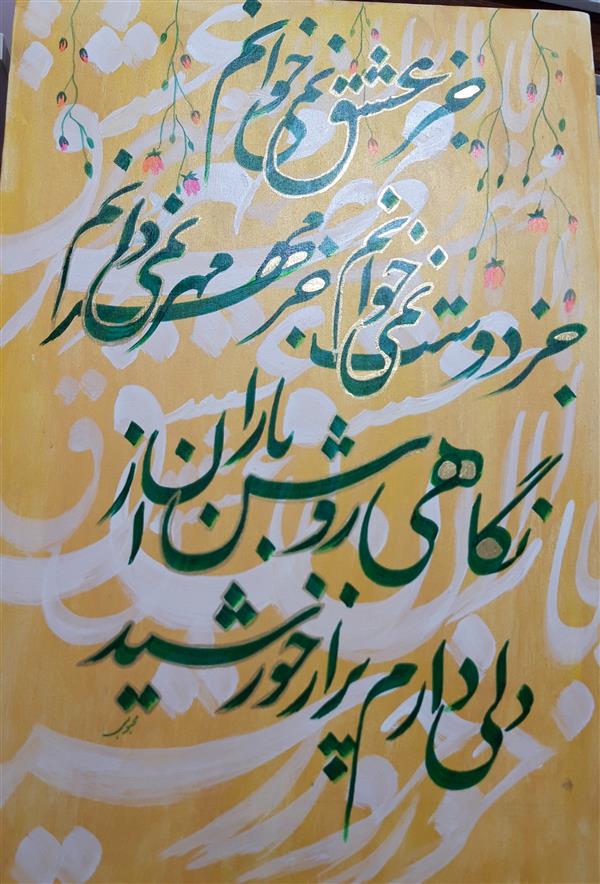 جز عشق نمی خوانم
جز دوست نمی خوانم جز مهر نمی دانم
نگاهی روشن از باران
دلی دارم پر از خورشید